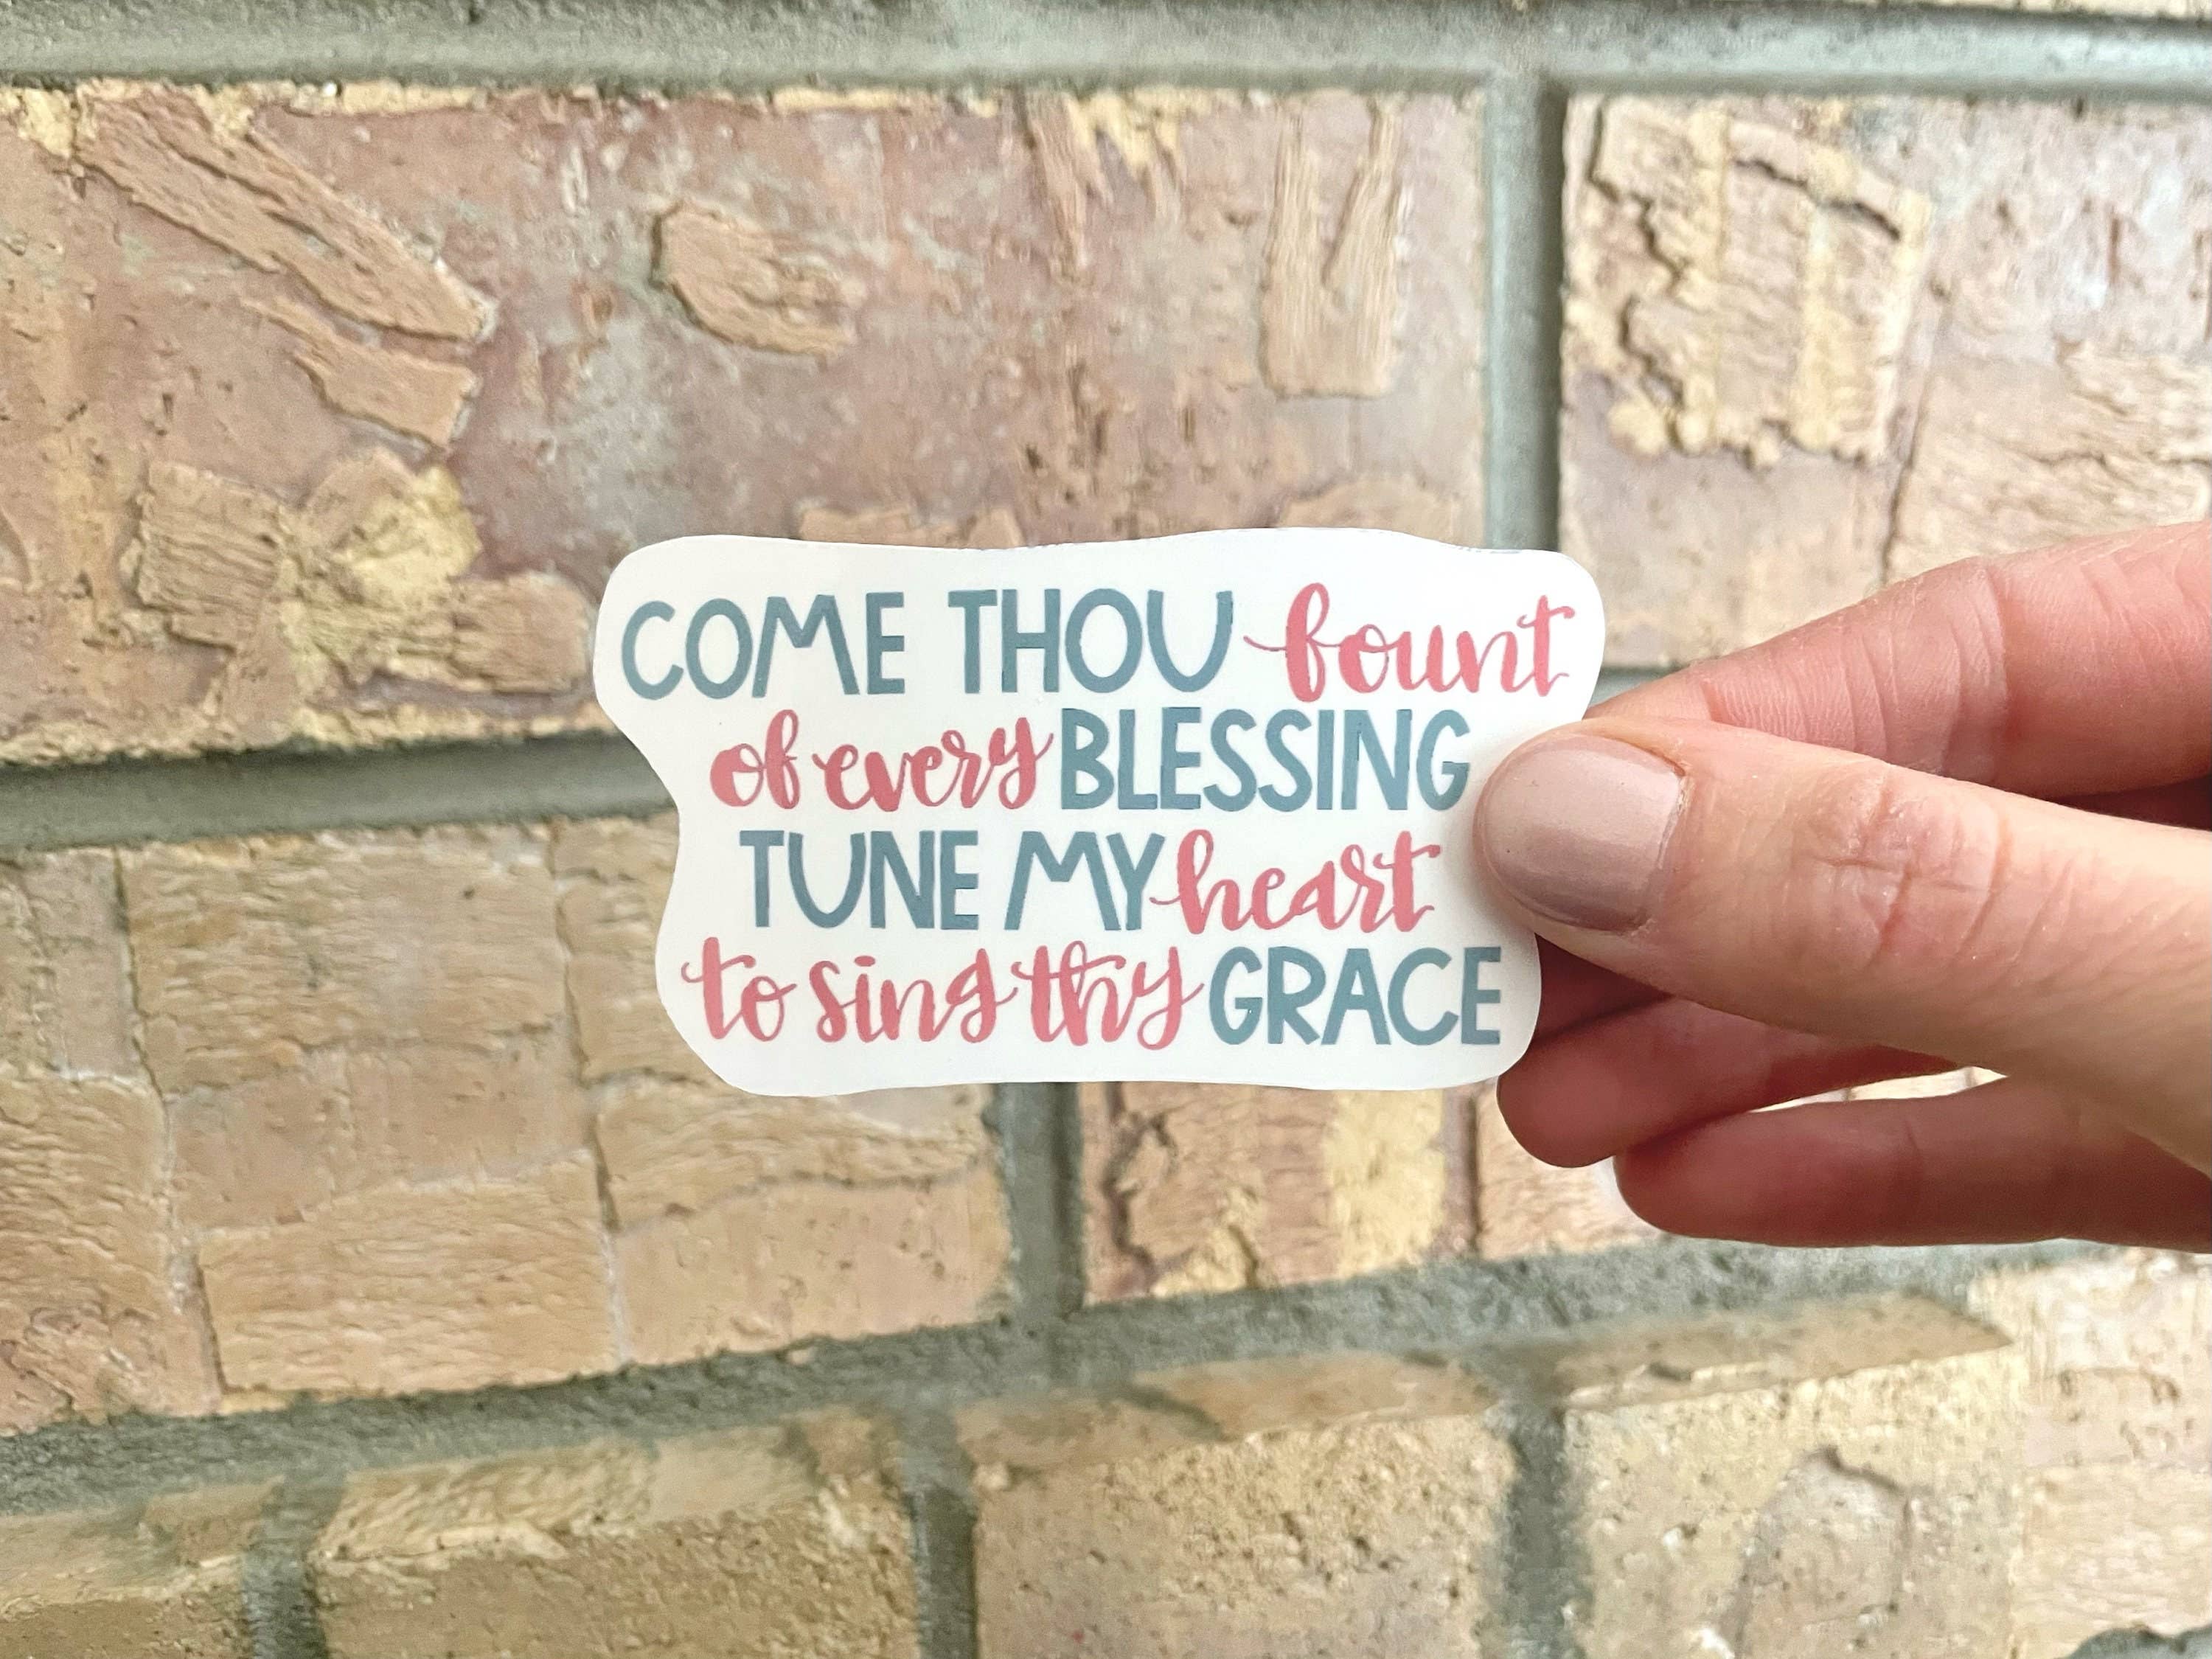 COME THOU fount
of every BLESSING
TUNE MY heart
to sing thy GRACE